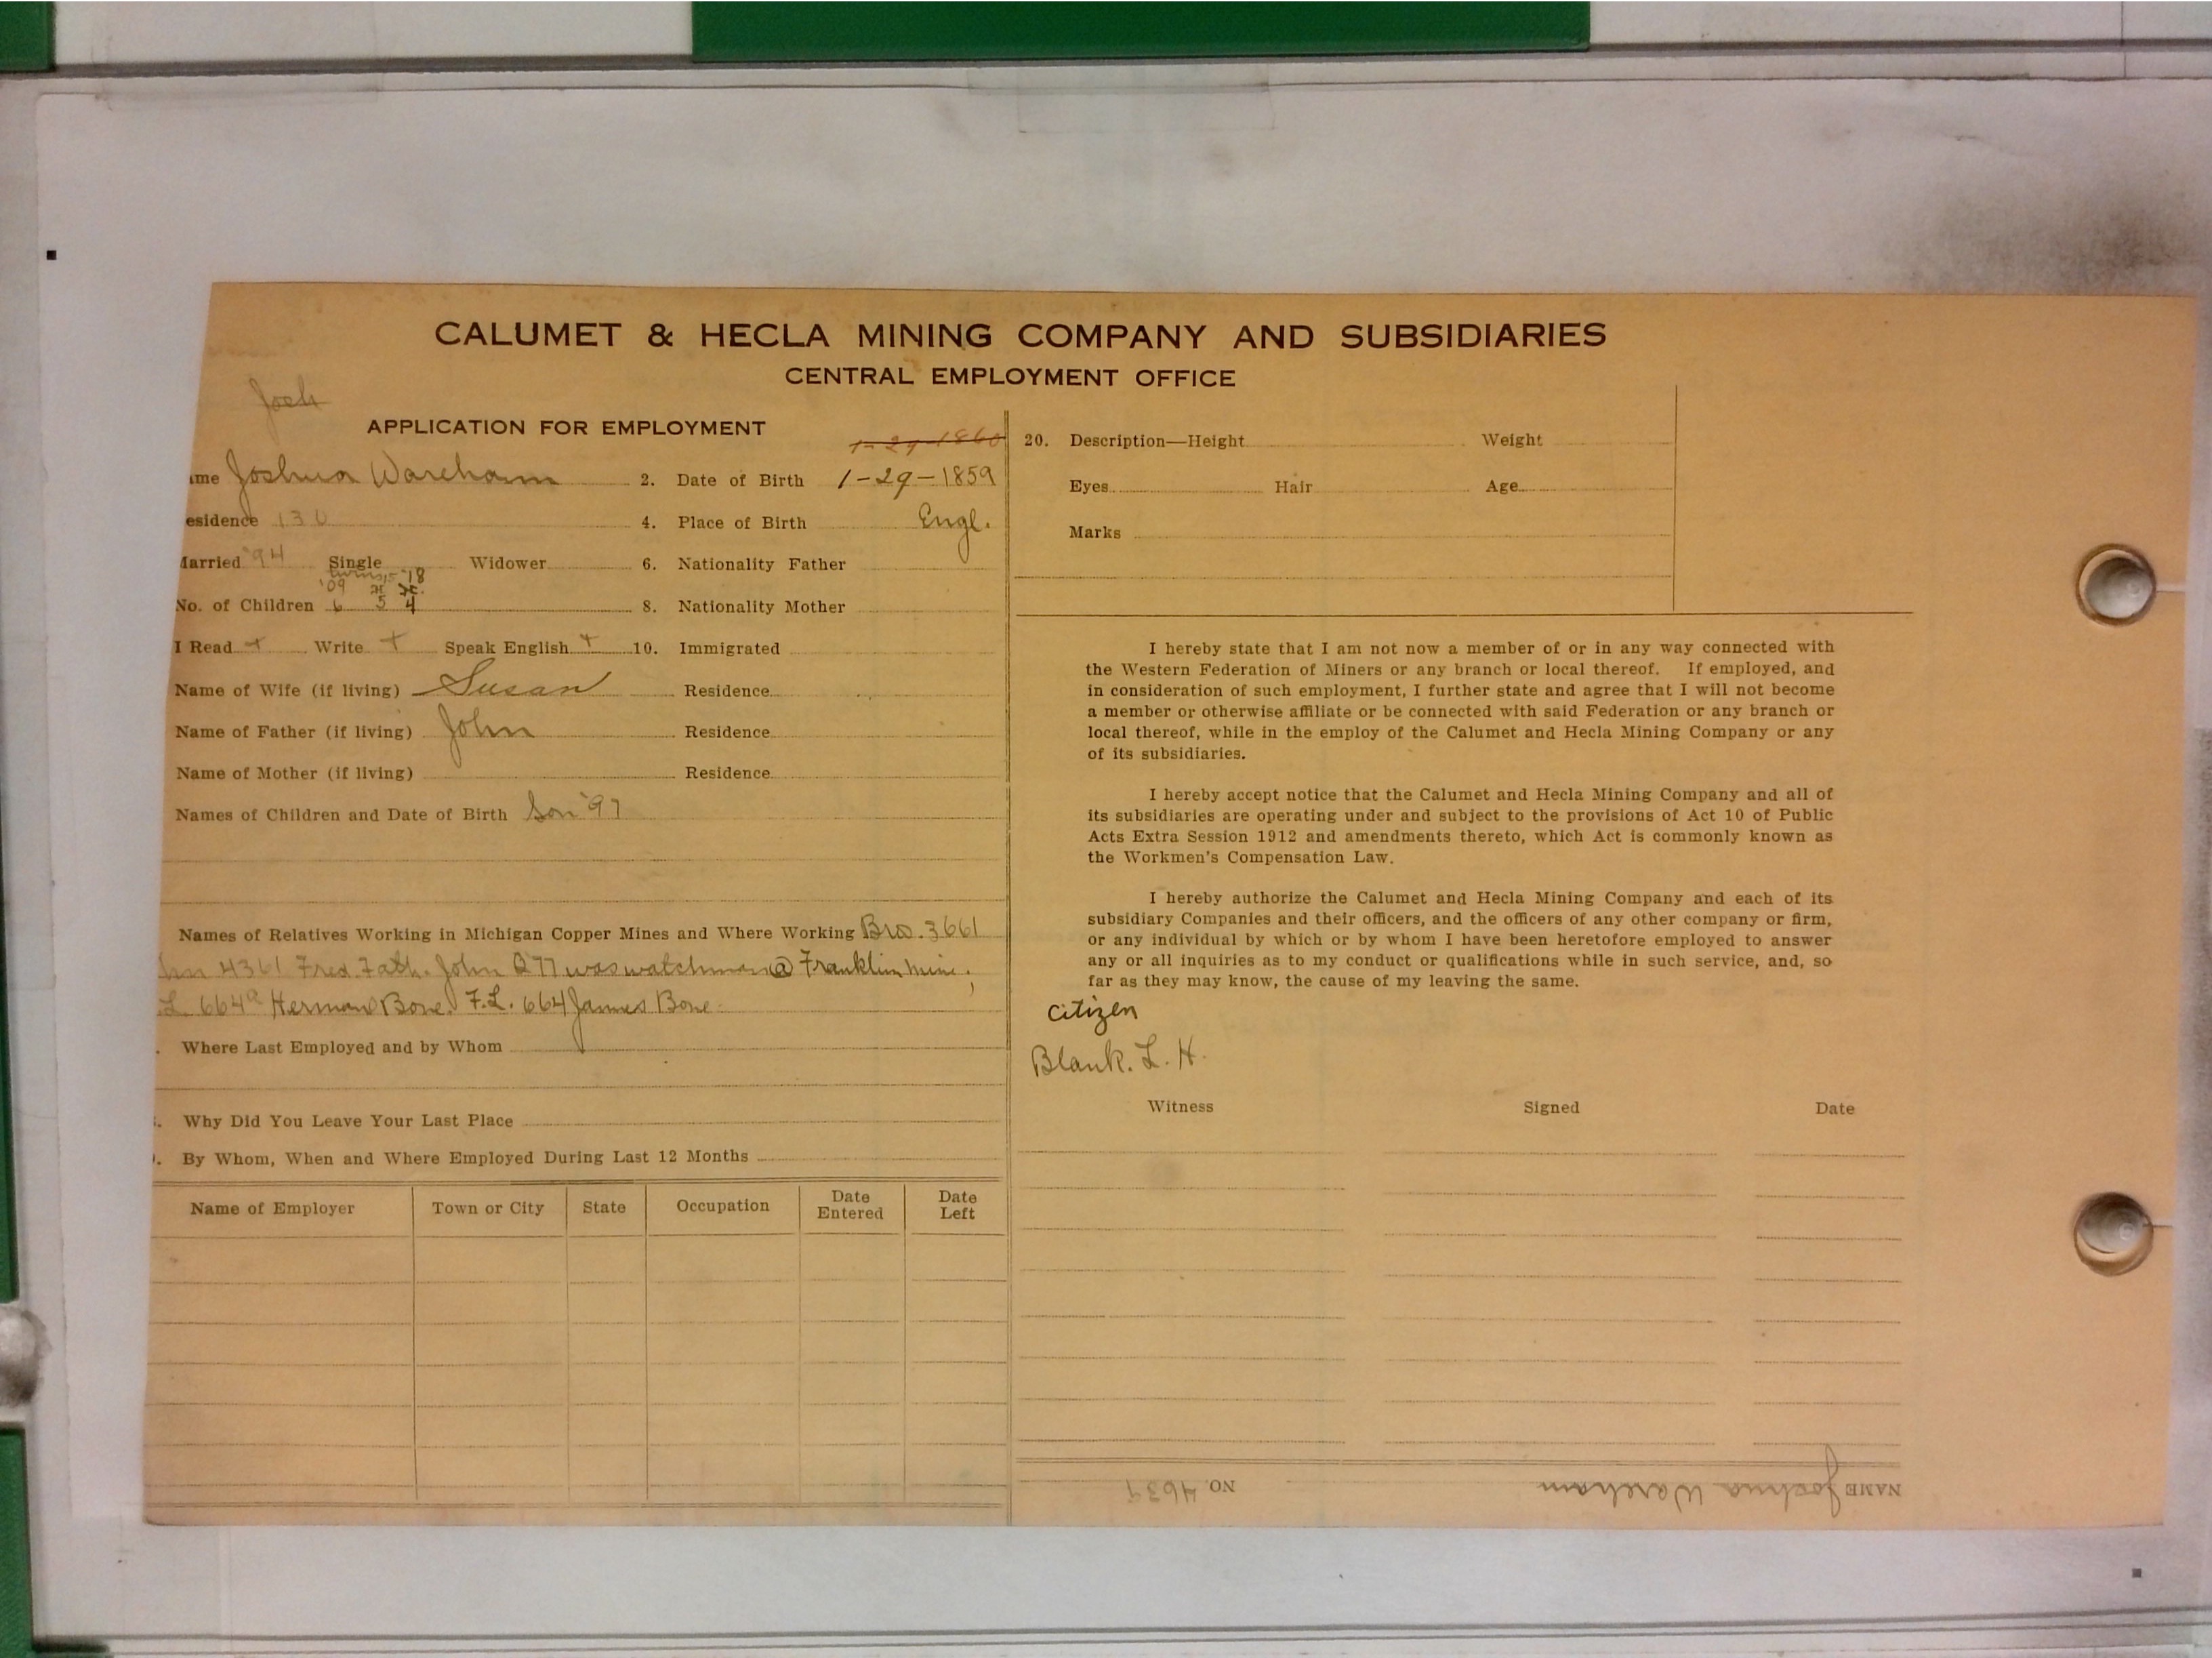 CALUMET & HECLA MINING COMPANY AND SUBSIDIARIES
CENTRAL EMPLOYMENT OFFICE
Josh
APPLICATION FOR EMPLOYMENT
1-29-1860
ame Joshua Wareham 2. Date of Birth 1-29-1859
esidence 130 4. Place of Birth Engl.
Married '94 Single Widower 6. Nationality Father
twins '15 '18
'09
No. of Children 6 5 4 8. Nationality Mother
I Read + Write + Speak English + 10. Immigrated
Name of Wife (if living) Susan Residence
Name of Father (if living) John Residence
Name of Mother (if living) Residence
Names of Children and Date of Birth Son '97
Names of Relatives Working in Michigan Copper Mines and Where Working Bro. 3661
4361 Fred. Fath. John 277 was watchman @ Franklin mine;
L. 664a Herman Bone. F.L. 664 James Bone
. Where Last Employed and by Whom
. Why Did You Leave Your Last Place
. By Whom, When and Where Employed During Last 12 Months
Name of Employer Town or City State Occupation Date Entered Date Left
20. Description—Height Weight
Eyes Hair Age
Marks
I hereby state that I am not now a member of or in any way connected with
the Western Federation of Miners or any branch or local thereof. If employed, and
in consideration of such employment, I further state and agree that I will not become
a member or otherwise affiliate or be connected with said Federation or any branch or
local thereof, while in the employ of the Calumet and Hecla Mining Company or any
of its subsidiaries.
I hereby accept notice that the Calumet and Hecla Mining Company and all of
its subsidiaries are operating under and subject to the provisions of Act 10 of Public
Acts Extra Session 1912 and amendments thereto, which Act is commonly known as
the Workmen's Compensation Law.
I hereby authorize the Calumet and Hecla Mining Company and each of its
subsidiary Companies and their officers, and the officers of any other company or firm,
or any individual by which or by whom I have been heretofore employed to answer
any or all inquiries as to my conduct or qualifications while in such service, and, so
far as they may know, the cause of my leaving the same.
Citizen
Blank. L. H.
Witness Signed Date
NAME Joshua Wareham NO. 4639